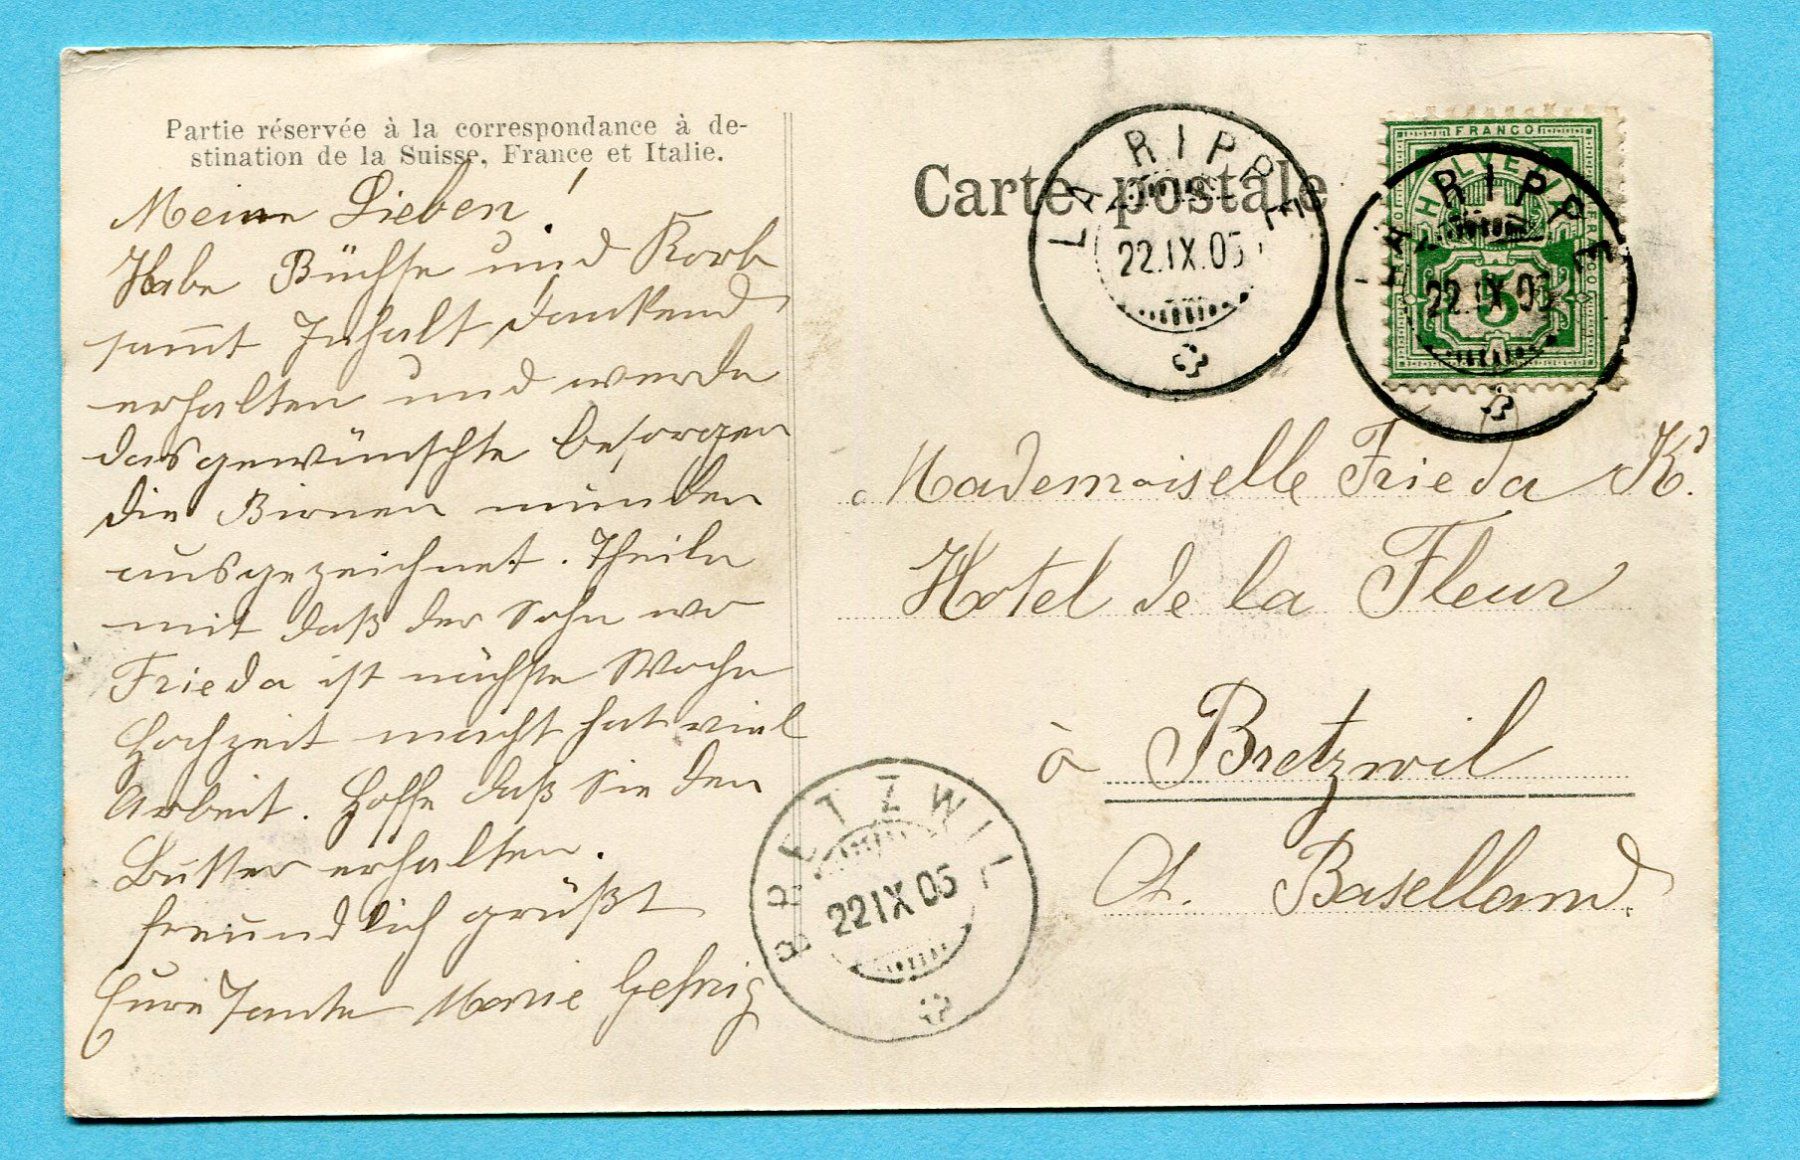 Partie réservée à la correspondance à de-
stination de la Suisse, France et Italie.
Meine Lieben!
Habe Büchse und Korb
sam̄t Inhalt dankend
erhalten und werde
das gewünschte besorgen
die Birnen munden
ausgezeichnet. Theile
mit daß der Sohn wo
Frieda ist nächste Woche
Hochzeit macht hat viel
Arbeit. Hoffe daß Sie den
Butter erhalten.
freundlich grüßt
Eure Tante Marie
Carte postale
LA RIPPE
22.IX.05
LA RIPPE
22.IX.05
FRANCO
HELVETIA
FRANCO
FRANCO
5
Mademoiselle Frieda K.
Hotel de la Fleur
à Bretzwil
Ct. Baselland.
BRETZWIL
22 IX 05